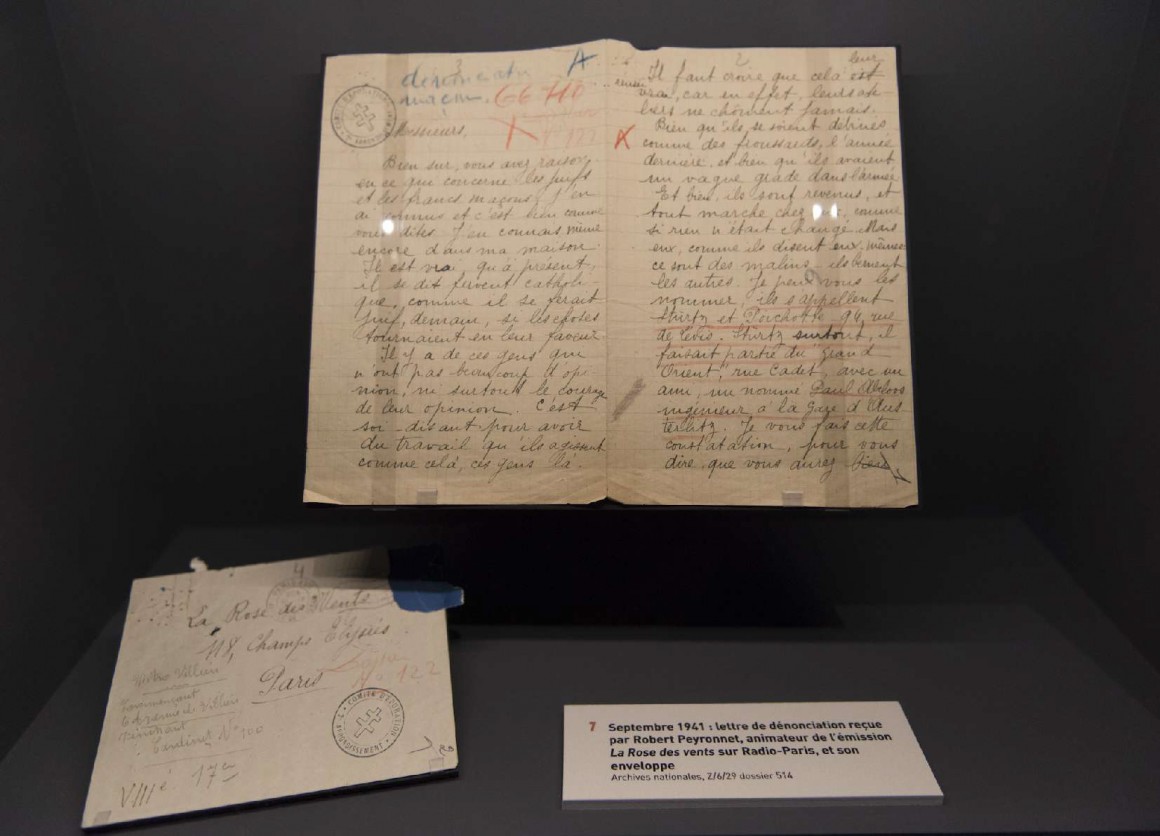 dénonciation
macon.
A
66 710
X
N° 122
COMITÉ D'ÉPURATION
Messieurs,
Bien sur, vous avez raison
en ce qui concerne les juifs
et les francs maçons. J'en
ai connus et c'est bien comme
vous dites. J'en connais même
encore dans ma maison.
Il est vrai, qu'à présent,
il se dit fervent catholi-
que, comme il se ferait
juif, demain, si les choses
tournaient en leur faveur.
Il y a de ces gens qui
n'ont pas beaucoup d'opi-
nion, ni surtout le courage
de leur opinion. C'est
soi-disant pour avoir
du travail qu'ils agissent
comme celà, ces gens là.
2
leur
Il faut croire que celà est
vrai, car en effet, leurs ate-
liers ne chôment jamais.
X
Bien qu'ils se soient débinés
comme des froussards, l'année
dernière, et bien qu'ils avaient
un vague grade dans l'armée
Et bien, ils sont revenus, et
tout marche chez eux, comme
si rien n'était changé. Mais
eux, comme ils disent eux-mêmes
ce sont des malins, ils
les autres. Je peux vous les
nommer, ils s'appellent
Stirtz et 94, rue
de Lévis. Stirtz surtout, il
faisait partie du "Grand
Orient," rue Cadet, avec un
ami, un nommé Paul
ingénieur à la Gare d'Aus
terlitz. Je vous fais cette
constatation, pour vous
dire que vous aurez bien
4
La Rose des Vents
118, Champs Elysées
Paris
N° 122
N° 100
VIIIé 17e
COMITÉ D'ÉPURATION
7 Septembre 1941 : lettre de dénonciation reçue
par Robert Peyronnet, animateur de l'émission
La Rose des vents sur Radio-Paris, et son
enveloppe
Archives nationales, Z/6/29 dossier 514